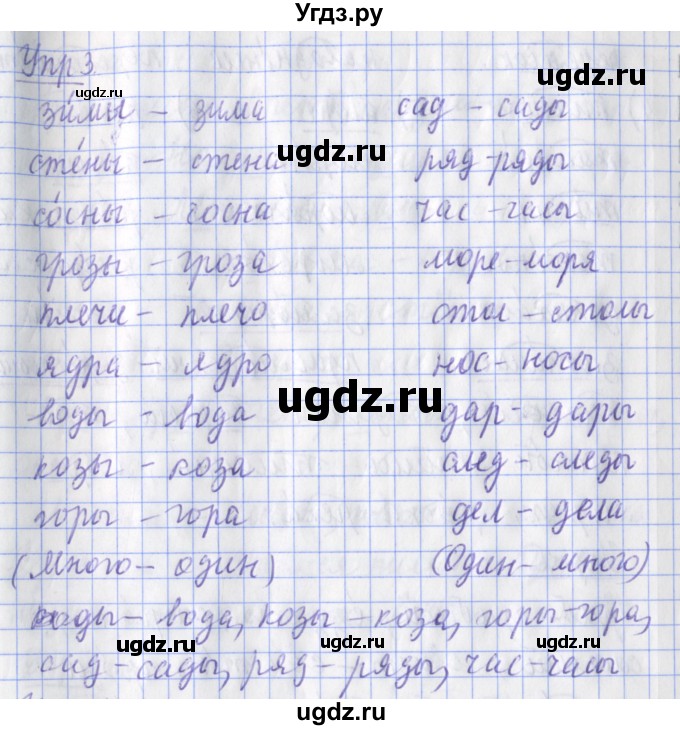 Угдз.ру
Упр 3
зи́мы – зима сад – сады
сте́ны – стена ряд – ряды
со́сны – сосна час – часы
грозы – гроза море – моря
плечи – плечо стол – столы
ядра – ядро нос – носы
воды – вода дар – дары
козы – коза след – следы
горы – гора дел – дела
(много – один) (Один – много)
воды – вода, козы – коза, горы – гора,
сад – сады, ряд – ряды, час – часы
ugdz.ru
ugdz.ru
ugdz.ru
ugdz.ru
ugdz.ru
ugdz.ru
ugdz.ru
ugdz.ru